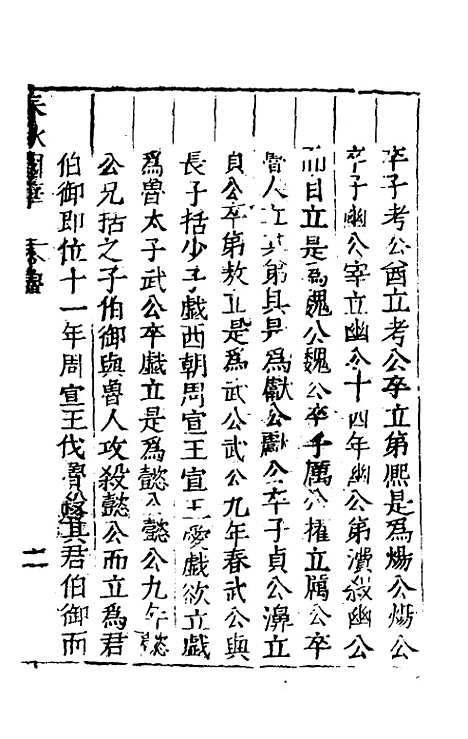 卒子考公酋立考公卒立第熈是爲煬公煬公
卒子幽公宰立幽公十四年幽公第潰殺幽公
而自立是爲魏公魏公卒子厲公擢立厲公卒
魯人立其第具是爲獻公獻公卒子貞公濞立
貞公卒第敖立是爲武公武公九年春武公與
長子括少子戲西朝周宣王宣王愛戲欲立戲
爲魯太子武公卒戲立是爲懿公懿公九年懿
公兄括之子伯御與魯人攻殺懿公而立爲君
伯御即位十一年周宣王伐魯殺其君伯御而
春秋
二